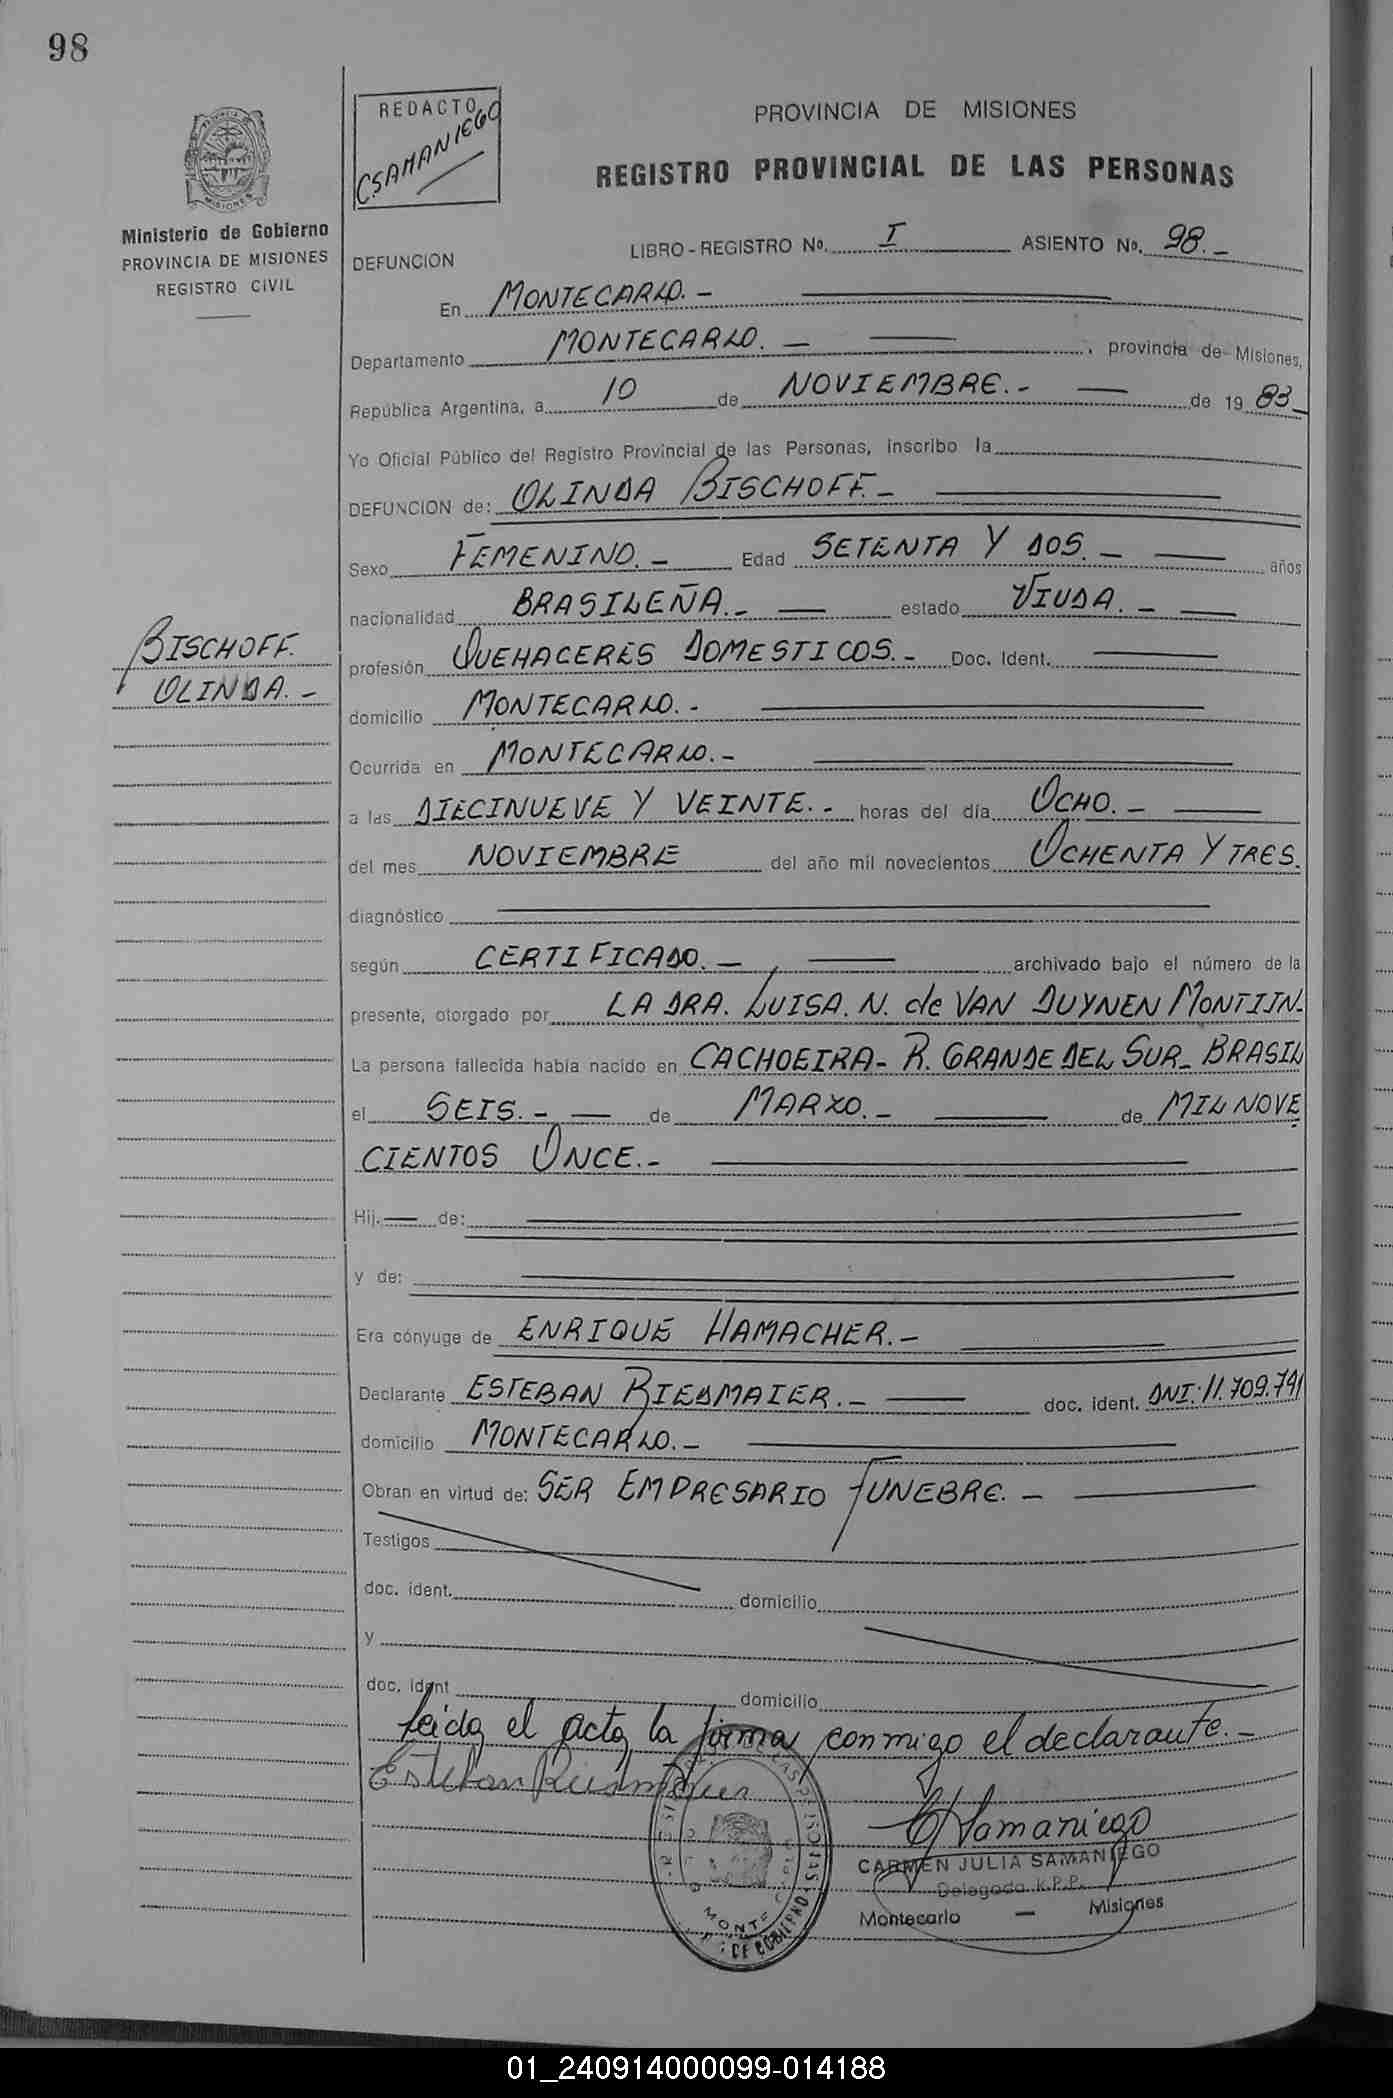 98
REDACTO
C SAMANIEGO
PROVINCIA DE MISIONES
REGISTRO PROVINCIAL DE LAS PERSONAS
Ministerio de Gobierno
PROVINCIA DE MISIONES
REGISTRO CIVIL
LIBRO - REGISTRO Nº. I ASIENTO Nº. 98. -
DEFUNCION
En MONTECARLO. -
Departamento MONTECARLO. - , provincia de Misiones,
República Argentina, a 10 de NOVIEMBRE. - de 19 83
Yo Oficial Público del Registro Provincial de las Personas, inscribo la
DEFUNCION de: OLINDA BISCHOFF. -
Sexo FEMENINO. - Edad SETENTA Y DOS. - años
nacionalidad BRASILEÑA. - estado VIUDA. -
BISCHOFF.
OLINDA. -
profesión QUEHACERES DOMESTICOS. - Doc. Ident.
domicilio MONTECARLO. -
Ocurrida en MONTECARLO. -
a las DIECINUEVE Y VEINTE. - horas del día OCHO. -
del mes NOVIEMBRE del año mil novecientos OCHENTA Y TRES.
diagnóstico
según CERTIFICADO. - archivado bajo el número de la
presente, otorgado por LA DRA. LUISA. N. de VAN DUYNEN MONTIJN.
La persona fallecida había nacido en CACHOEIRA - R. GRANDE DEL SUR - BRASIL
el SEIS. - de MARZO. - de MIL NOVE
CIENTOS ONCE. -
Hij. de:
y de:
Era cónyuge de ENRIQUE HAMACHER. -
Declarante ESTEBAN RIEDMAIER. - doc. ident. DNI: 11.709.791
domicilio MONTECARLO. -
Obran en virtud de: SER EMPRESARIO FUNEBRE. -
Testigos
doc. ident. domicilio
y
doc. ident domicilio
Leida el acta la firma conmigo el declarante. -
Esteban Riedmaier
CSamaniego
CARMEN JULIA SAMANIEGO
Delegada R.P.P.
Montecarlo - Misiones
01_240914000099-014188